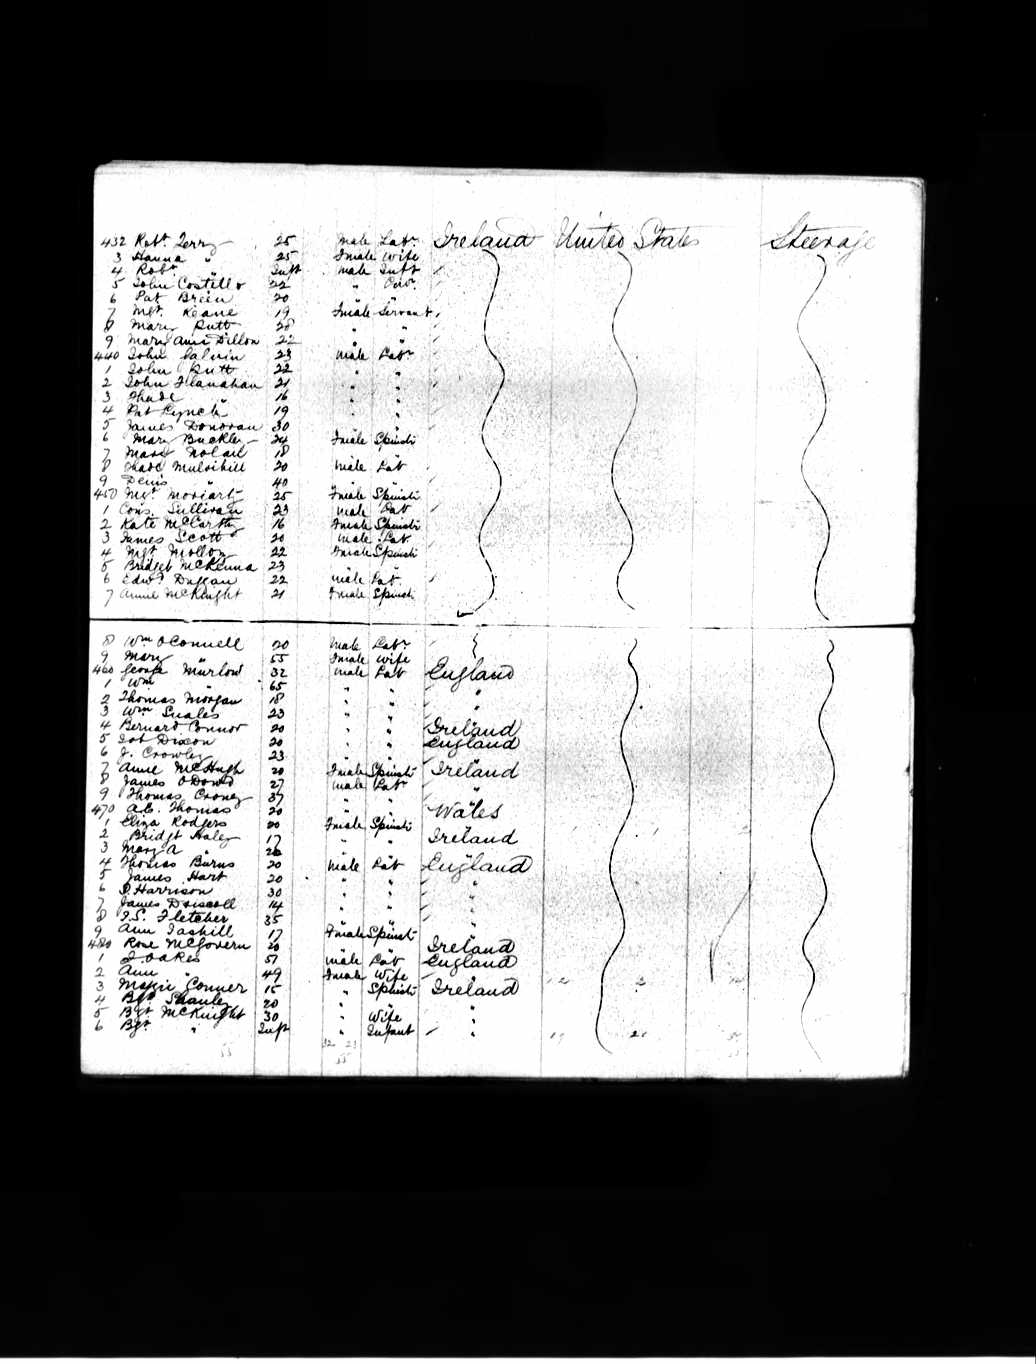 432 Robt. Terry 25 Male Labr. Ireland United States Steerage
3 Hanna " 25 Fmale Wife
4 Robt. " Inft Male Inft
5 John Costello 22 "
6 Pat Breen 20 " "
7 Mgt. Keane 19 Fmale Servant
8 Mary Rutt 28 " "
9 Mary Ann Dillon 22 " "
440 John Galvin 23 Male Labr.
1 John Rutt 22 " "
2 John Flanahan 21 " "
3 Thade " 16 " "
4 Pat Lynch 19 " "
5 James Donovan 30 " "
6 Mary Buckley 24 Fmale Spinstr
7 Mary Nolan 18 " "
8 Thade Mulvihill 20 Male Lab
9 Denis " 40 " "
450 Mgt. Moriarty 25 Fmale Spinstr
1 Cons. Sullivan 23 Male Lab
2 Kate McCarthy 16 Fmale Spinstr
3 James Scott 20 Male Lab
4 Mgt. Molloy 22 Fmale Spinstr
5 Bridget McKenna 23 " "
6 Edwd. Duggan 22 Male Lab.
7 Annie McKnight 21 Fmale Spinstr
8 Wm OConnell 20 Male Labr.
9 Mary " 55 Fmale Wife
460 George Murlow 32 Male Lab England
1 Wm " 65 " " "
2 Thomas Morgan 18 " " "
3 Wm. Suales 23 " " "
4 Bernard Connor 20 " " Ireland
5 Job Dixon 20 " " England
6 J. Crowley 23 " " "
7 Anne McHugh 20 Fmale Spinstr Ireland
8 James ODowd 27 Male Labr. "
9 Thomas Croney 37 " " "
470 A.C. Thomas 20 " " Wales
1 Eliza Rodgers 20 Fmale Spinstr "
2 Bridget Haley 17 " " Ireland
3 Mary A " " " "
4 Thomas Burns 20 Male Lab England
5 James Hart 20 " " "
6 Harrison 30 " " "
7 James Driscoll 14 " " "
8 J.S. Fletcher 35 " " "
9 Ann Gaskill 17 Fmale Spinstr "
480 Rose McGovern 20 " " Ireland
1 J. Oakes 57 Male Lab England
2 Ann " 49 Fmale Wife "
3 Maggie Conner 15 " Spinstr Ireland
4 Bgt. Shanley 20 " " "
5 Bgt McKnight 30 " Wife "
6 Bgt. " Inft " Infant "
32 23
55